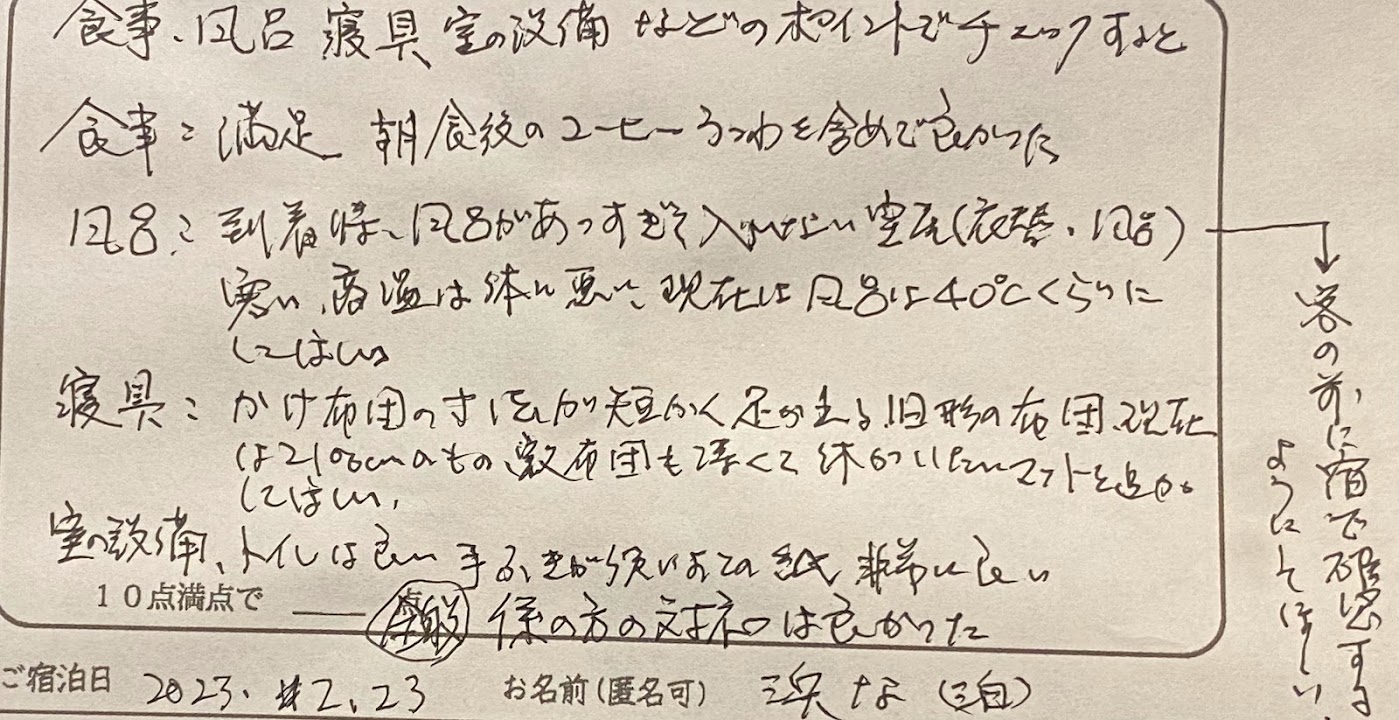 食事、風呂 寝具 室の設備 などのポイントでチェックすると
食事: 満足 朝食後のコーヒー うつわを含めて良かった
風呂: 到着時、風呂があつすぎて入れない 室(衣替・風呂)
寒い、高温は体に悪い、現在は風呂は40℃くらいに
してほしい
寝具: かけ布団の寸法が短かく足が出る 旧形の布団、現在
は210cmのもの、敷布団も薄くて体がいたい マットを
してほしい、
室の設備、トイレは良い 手ふきが使いよての紙 非常に良い
10点満点で 点
係の方の対応は良かった
客の前に宿で確認する
ようにしてほしい
ご宿泊日 2023. 2.23 お名前(匿名可)